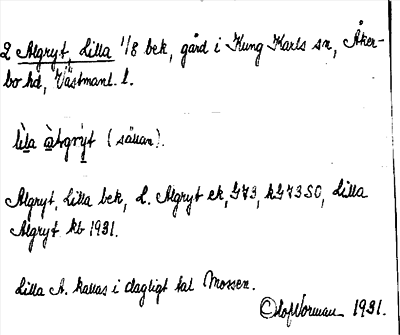 2 Algryt, Lilla 1/8 bek, gård i Kung Karls sn, Åker-
bo hd, Västmanl. l.
lìla àlgrỳt (sällan).
Algryt, Lilla bek, L. Algryt ek, G73, kG73SO, Lilla
Algryt kb 1931.
Lilla A. kallas i dagligt tal Mossen.
Olof Norman 1931.